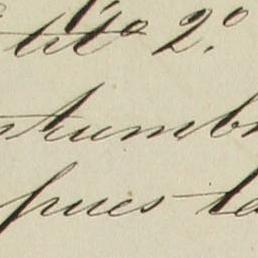 tito 2º.
ntrumb
pues la